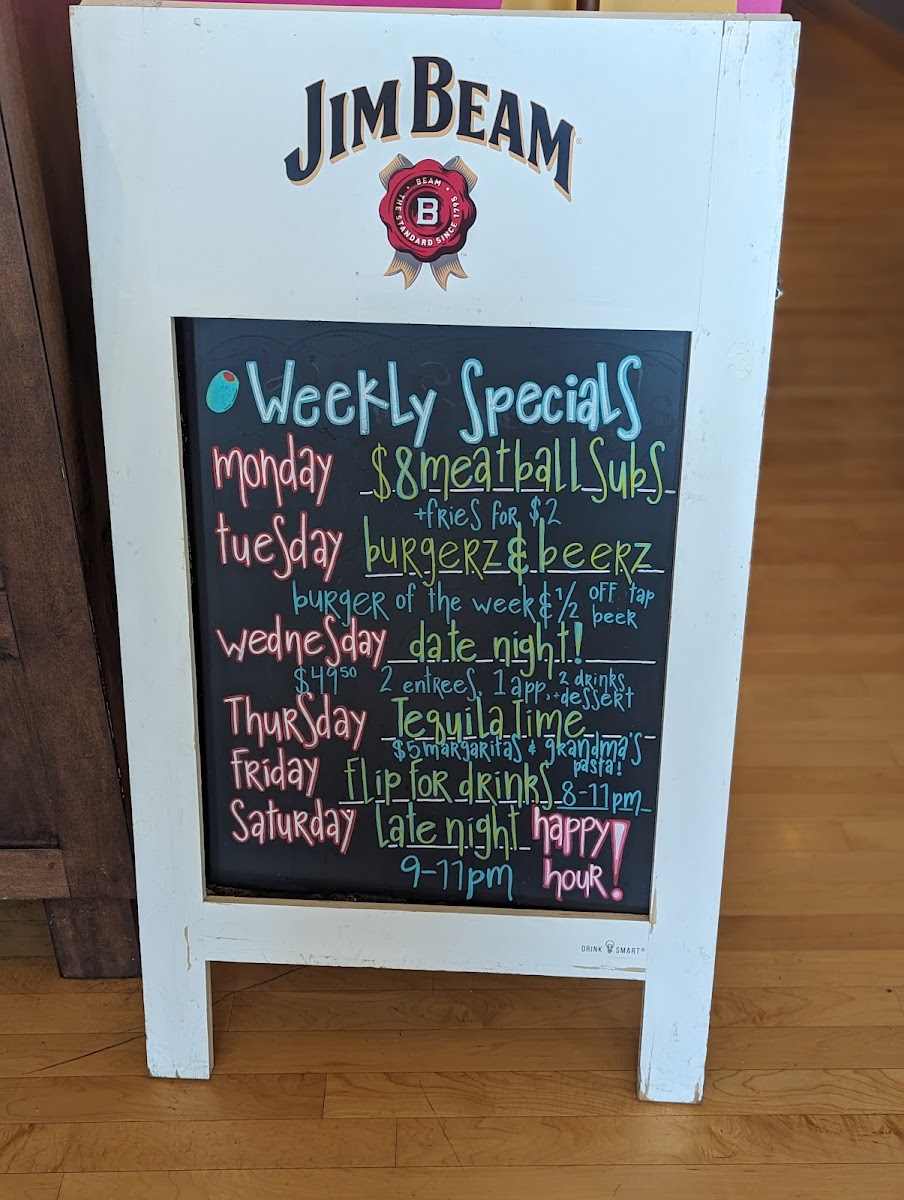 JIM BEAM
BEAM
B
THE STANDARD SINCE 1795
Weekly Specials
monday $8 meatball subs
+fries for $2
tuesday burgerz & beerz
burger of the week & 1/2 off tap beer
wednesday date night!
$49⁵⁰ 2 entrees, 1 app, 2 drinks, + dessert
Thursday Tequila Time
$5 margaritas & grandma's pasta!
Friday flip for drinks 8-11pm
Saturday Late night happy hour!
9-11pm
DRINK SMART®